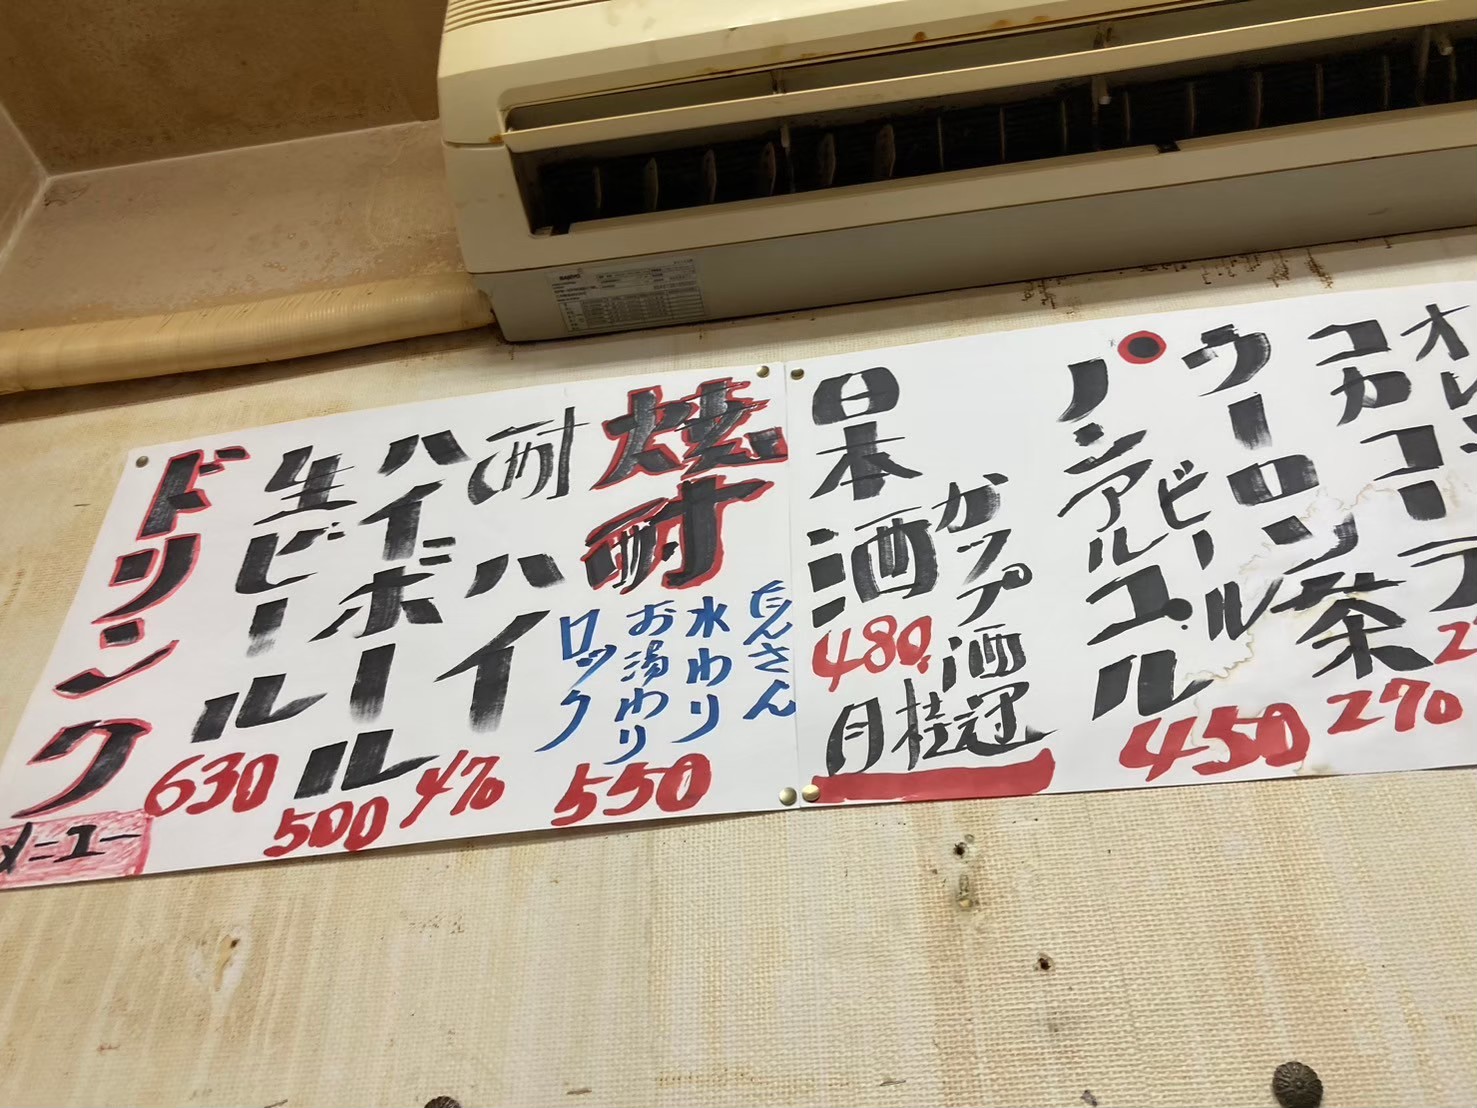 ドリンク
メニュー
生ビール
630
ハイボール
500
酎ハイ
470
焼酎
たんさん
水わり
お湯わり
ロック
550
日本酒
480
カップ酒
月桂冠
ノンアルコール
ビール
450
ウーロン茶
270
コカコーラ
オレ